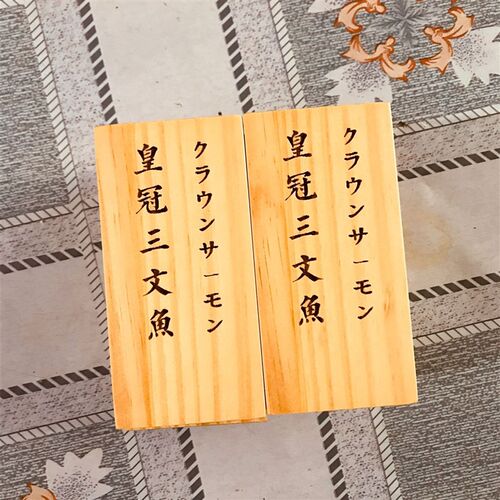 クラウンサーモン
皇冠三文魚
クラウンサーモン
皇冠三文魚